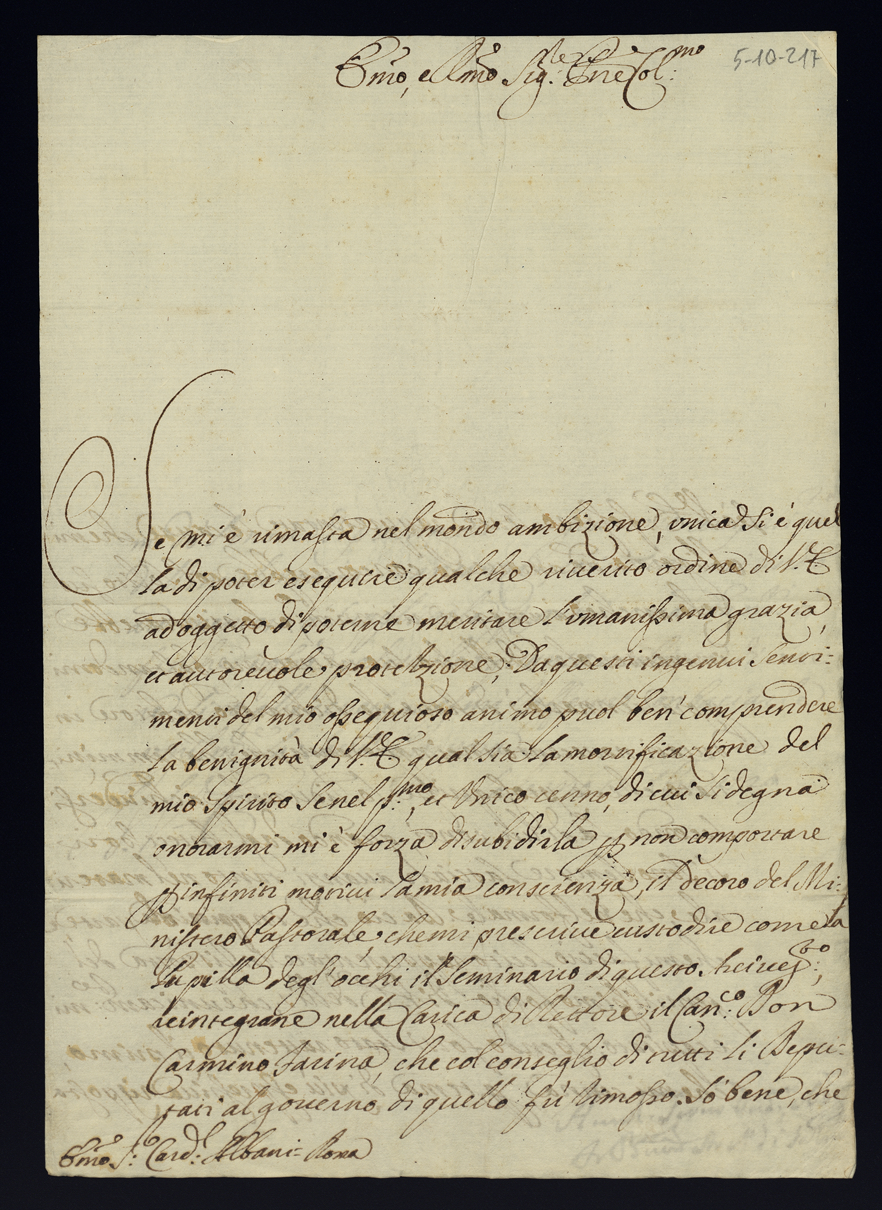 Em̃o, e Rm̃o Sig:re Pñe Col:mo
5-10-217
Se mi è rimasta nel mondo ambizione, unica si è quel
la di poter eseguire qualche riverito ordine di V. E
ad oggetto di poterne meritare l'umanissima grazia,
et autorèuole protezzione; Da questi ingenui senti:
menti del mio ossequioso animo puol ben comprendere
la benignità di V. E qual sia la mortificazione del
mio spirito se nel p:mo, et unico cenno, di cui si degna
onorarmi mi è forza disubidirla p non comportare
p infiniti motivi la mia conscienza, il Decoro del Mi:
nistero Pastorale, che mi prescrive custodire come la
Pupilla degl'occhi il Seminario di questo Arcives:to,
reintegrare nella Carica di Rettore il Can:co Don
Carmino Farina, che col conseglio di tutti li Depu:
tati al governo di quello fù rimosso. Sò bene, che
Em̃o S:r Card:l Albani = Roma